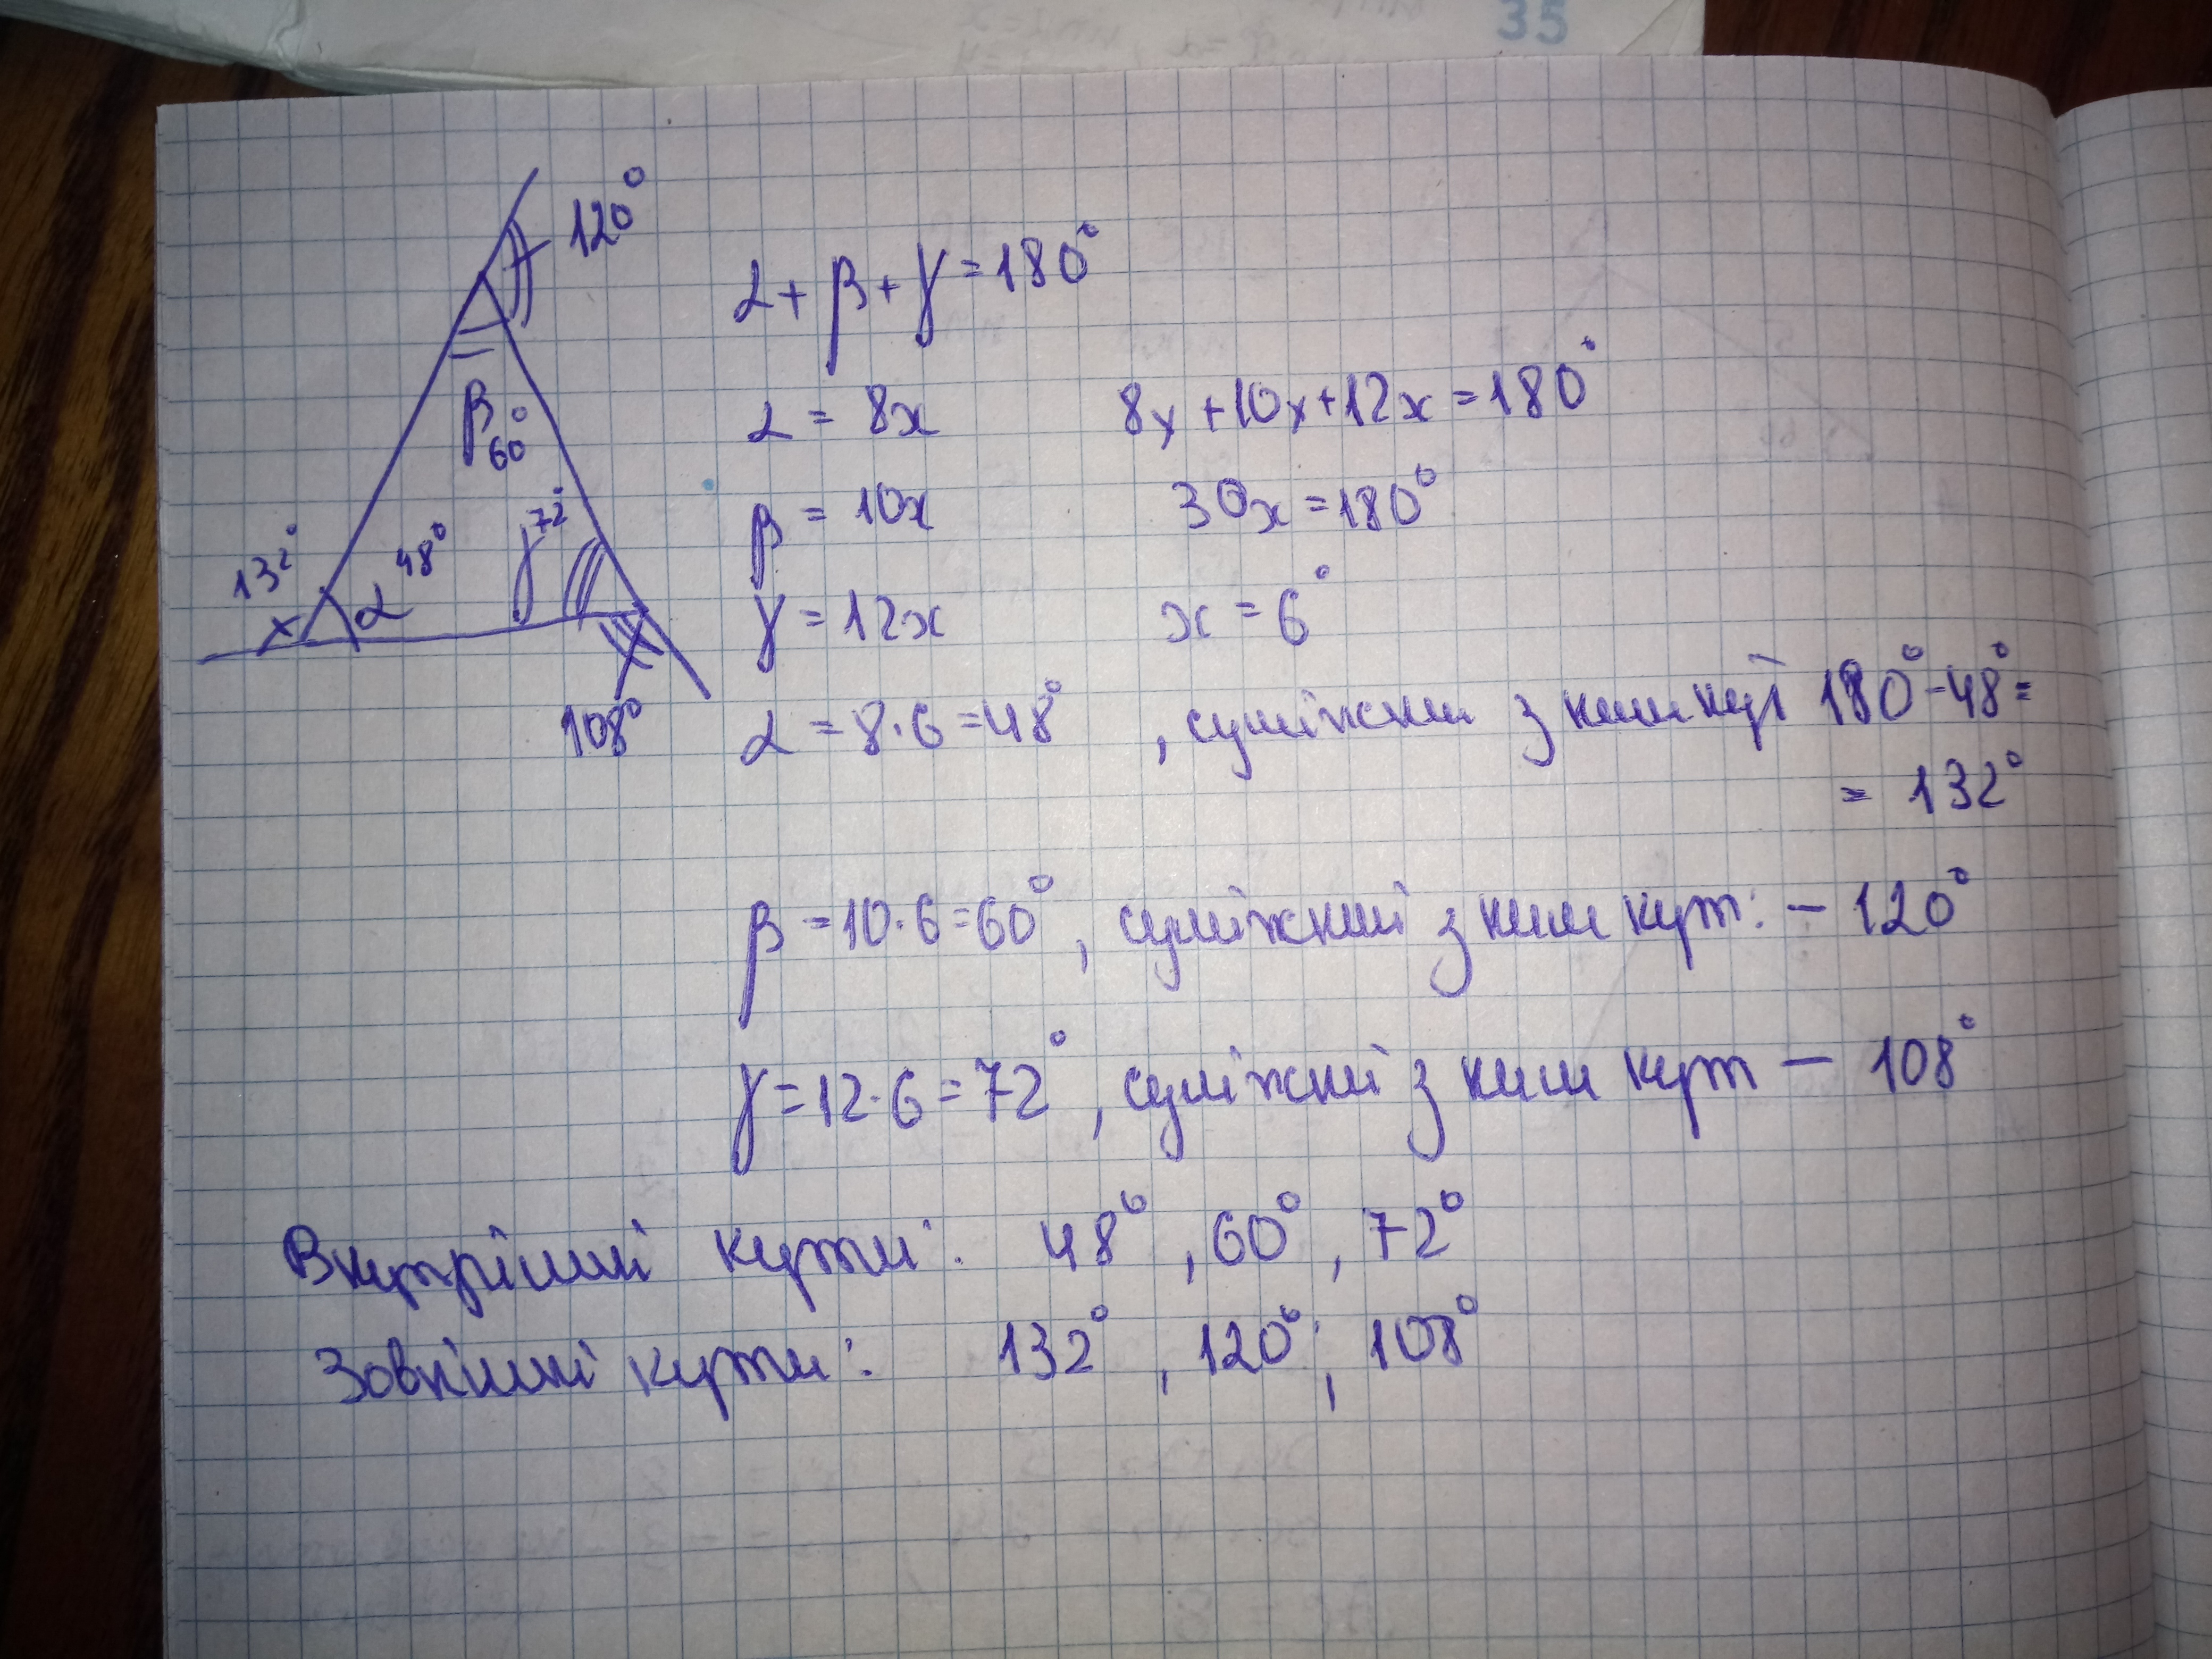 35
120°
β
60°
γ 72°
132°
α 48°
108°
α + β + γ = 180°
α = 8x
8x + 10x + 12x = 180°
β = 10x
30x = 180°
γ = 12x
x = 6°
α = 8·6 = 48° , суміжний з ним кут 180° - 48° =
= 132°
β = 10·6 = 60° , суміжний з ним кут: - 120°
γ = 12·6 = 72° , суміжний з ним кут — 108°
Внутрішні кути: 48° , 60° , 72°
Зовнішні кути: 132° , 120° ; 108°